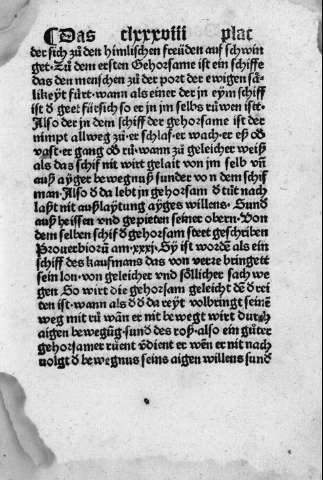 ¶ Das clxxxviii plat
der sich zů den himlischen freüden auf schwin
get. Zů dem ersten Gehorsame ist ein schiffe
das den menschen zů der port der ewigen sä-
likeyt fürt. wann als einer der jn eym schiff
ist d geet für sich so er jn jm selbs růwen ist.
Also der jn dem schiff der gehorsame ist der
nimpt allweg zů. er schlaf. er wach. er eß ob
vast. er gang ob rů. wann zů geleicher weiß
als das schif nit wirt gelait von jm selb vn̄
auß ayger bewegnuß sunder von dem schif
man. Also d da lebt jn gehorsam d tůt nach
laßt nit auß laytung ayges willens. Sund
auß heissen vnd gepieten seiner obern. Von
dem selben schif d gehorsam steet geschriben
Prouerbiorū am. xxxj. Sy ist wordē als ein
schiff des kaufmans das von verre bringet
sein lon. von geleicher vnd söllicher sach we
gen. So wirt die gehorsam geleicht dē drei
ten ist. wann als d d da reyt volbringt seinē
weg mit rů wān er nit bewegt wirt durch
aigen bewegūg. sund des roß. also ein gůter
gehorsamer růent vdient er wēn er nit nach
volgt d bewegnus seins aigen willens sund